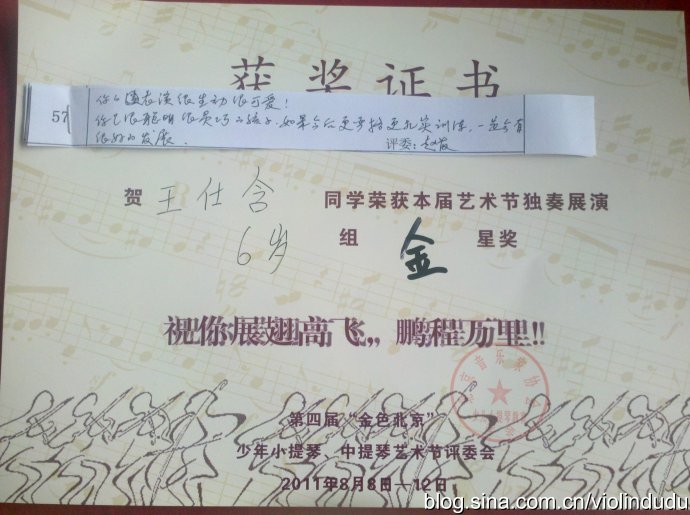 获奖证书
57
你的演表演很生动很可爱！
你是很聪明很灵巧的孩子，如果今后更要接更扎实训练，一定会有
很好的发展．
评委：
贺 王仕含 同学荣获本届艺术节独奏展演
6岁 组 金 星奖
祝你展翅高飞，鹏程万里!!
北京音乐家协会
第四届“金色北京”
少年小提琴、中提琴艺术节评委会
2011年8月8日—12日
blog.sina.com.cn/violindudu